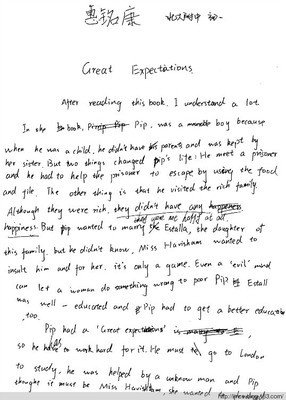 惠铭康 北大附中 初一
Great Expectations
After reading this book, I understand a lot.
In the book, Pip, was a boy because
when he was a child, he didn't have his parents and was kept by
her sister. But two things changed Pip's life: He meet a prisoner
and he had to help the prisoner to escape by using the food
and file. The other thing is that he visited the rich family.
Although they were rich, they didn't have any happiness
happiness. But Pip wanted to marry the Estalla, the daughter of
this family, but he didn't know, Miss Havisham wanted to
insult him and for her, it's only a game. Even a 'evil' mind
can let a woman do something wrong to poor Pip. Estall
was well - educated and Pip had to get a better education
, too.
Pip had a 'Great expectations'
so he have to work hard for it. He must go to London
to study, he was helped by a unknow man and Pip
thought it must be Miss Havisham, she wanted